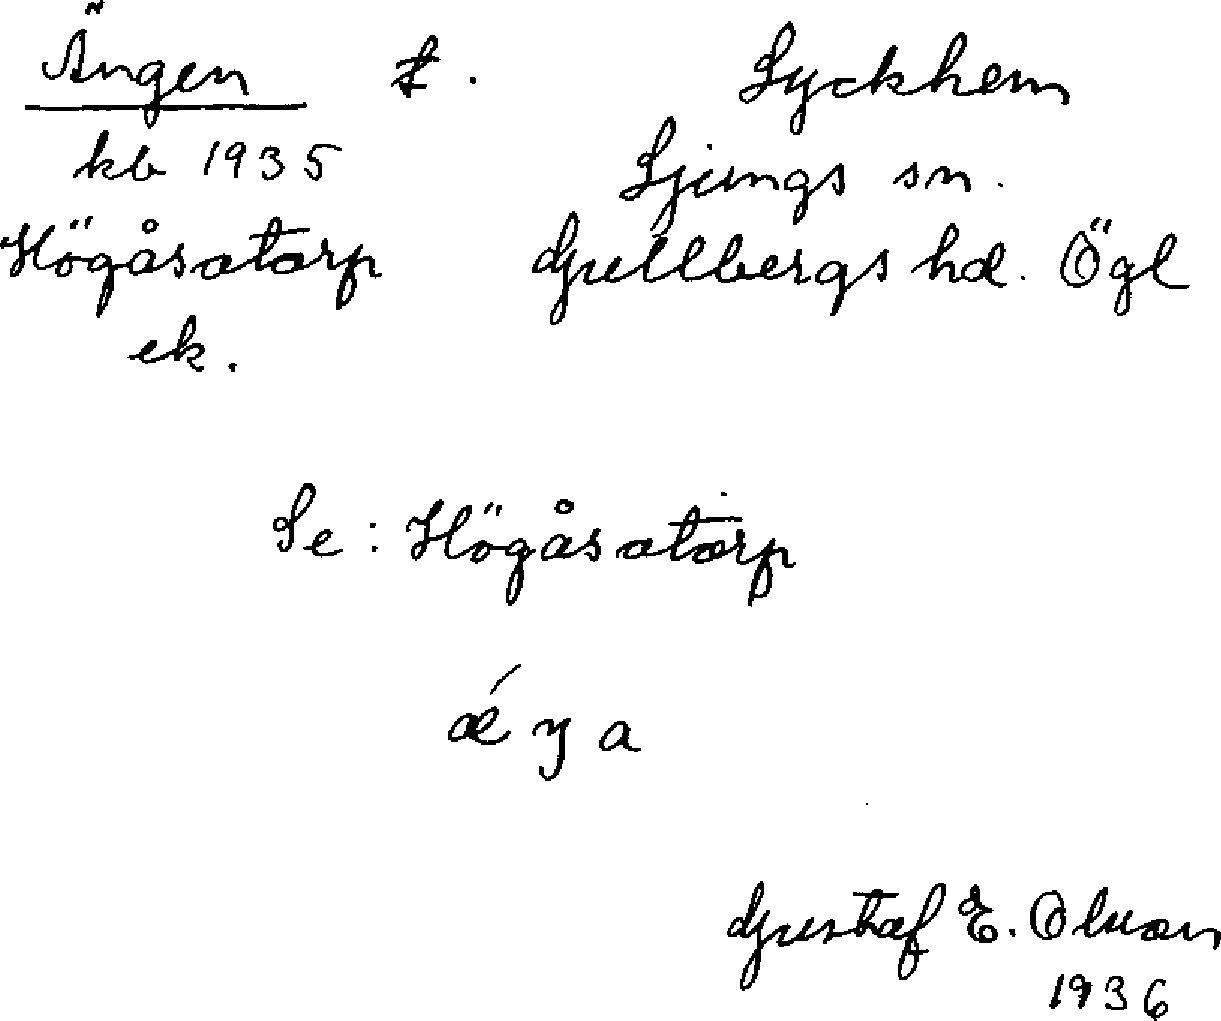 Ängen t. Lyckhem
kb 1935 Ljungs sn.
Högåsatorp Gullbergs hd. Ögl
ek.
Se: Högåsatorp
ǽŋa
Gustaf E. Olsson
1936